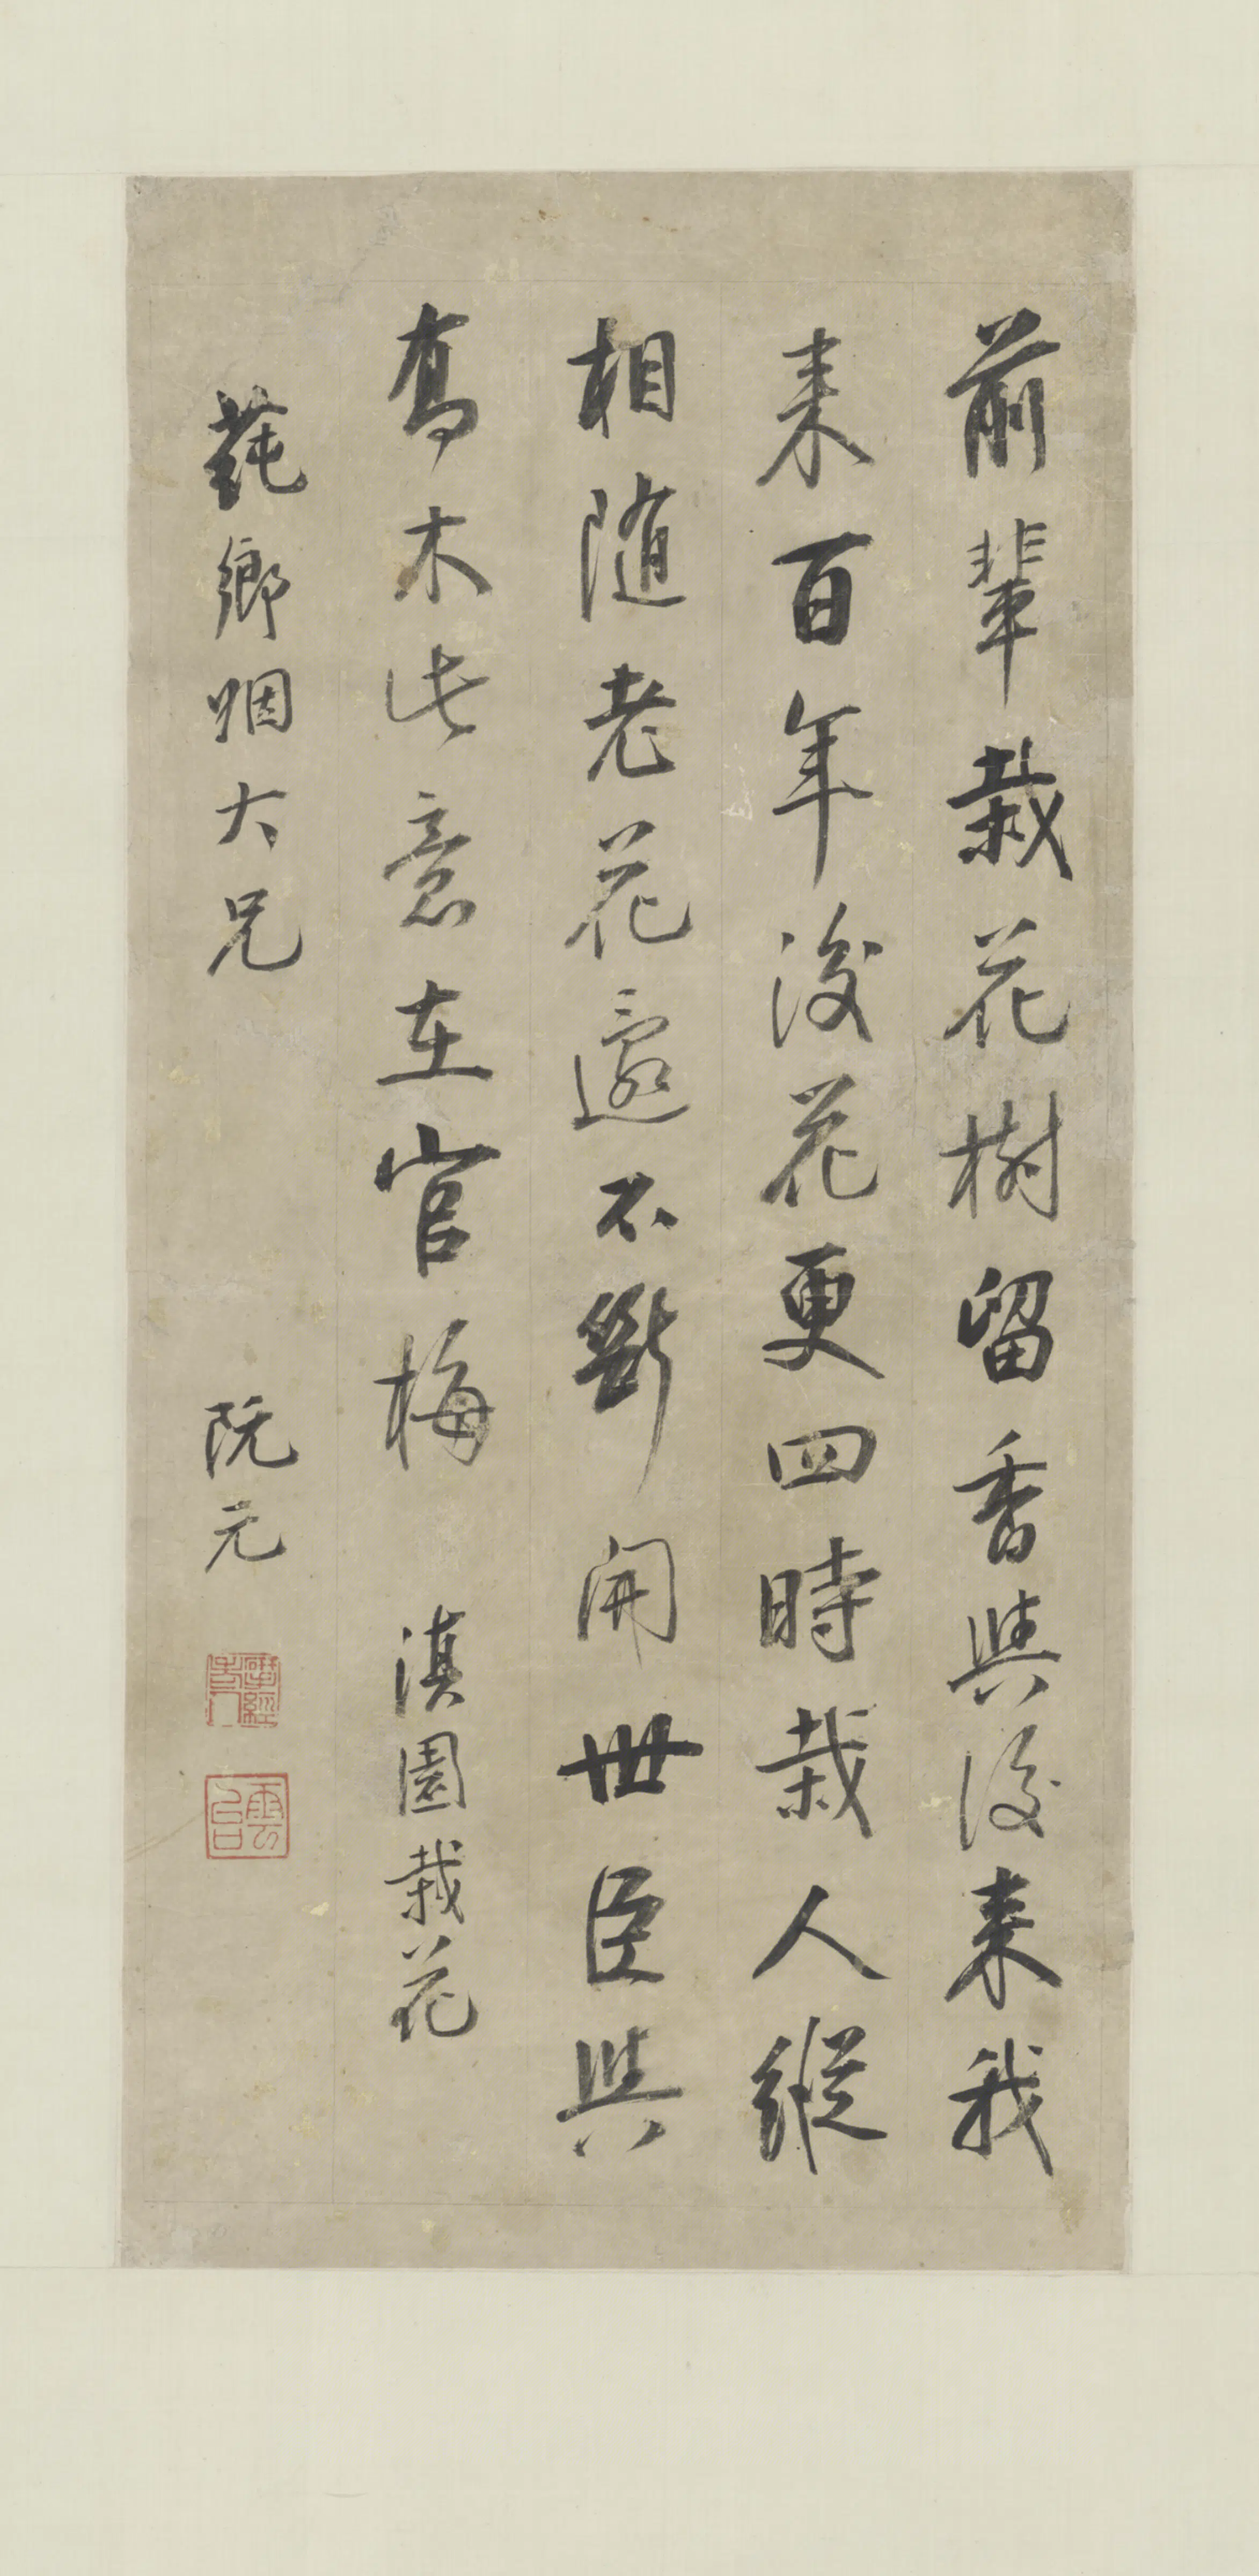 前輩栽花樹留香與後来我
来百年後花更四時栽人縱
相隨老花還不斷開世臣與
喬木此意在官梅 滇園栽花
蓴鄉姻大兄 阮元
揅經老人
雲台